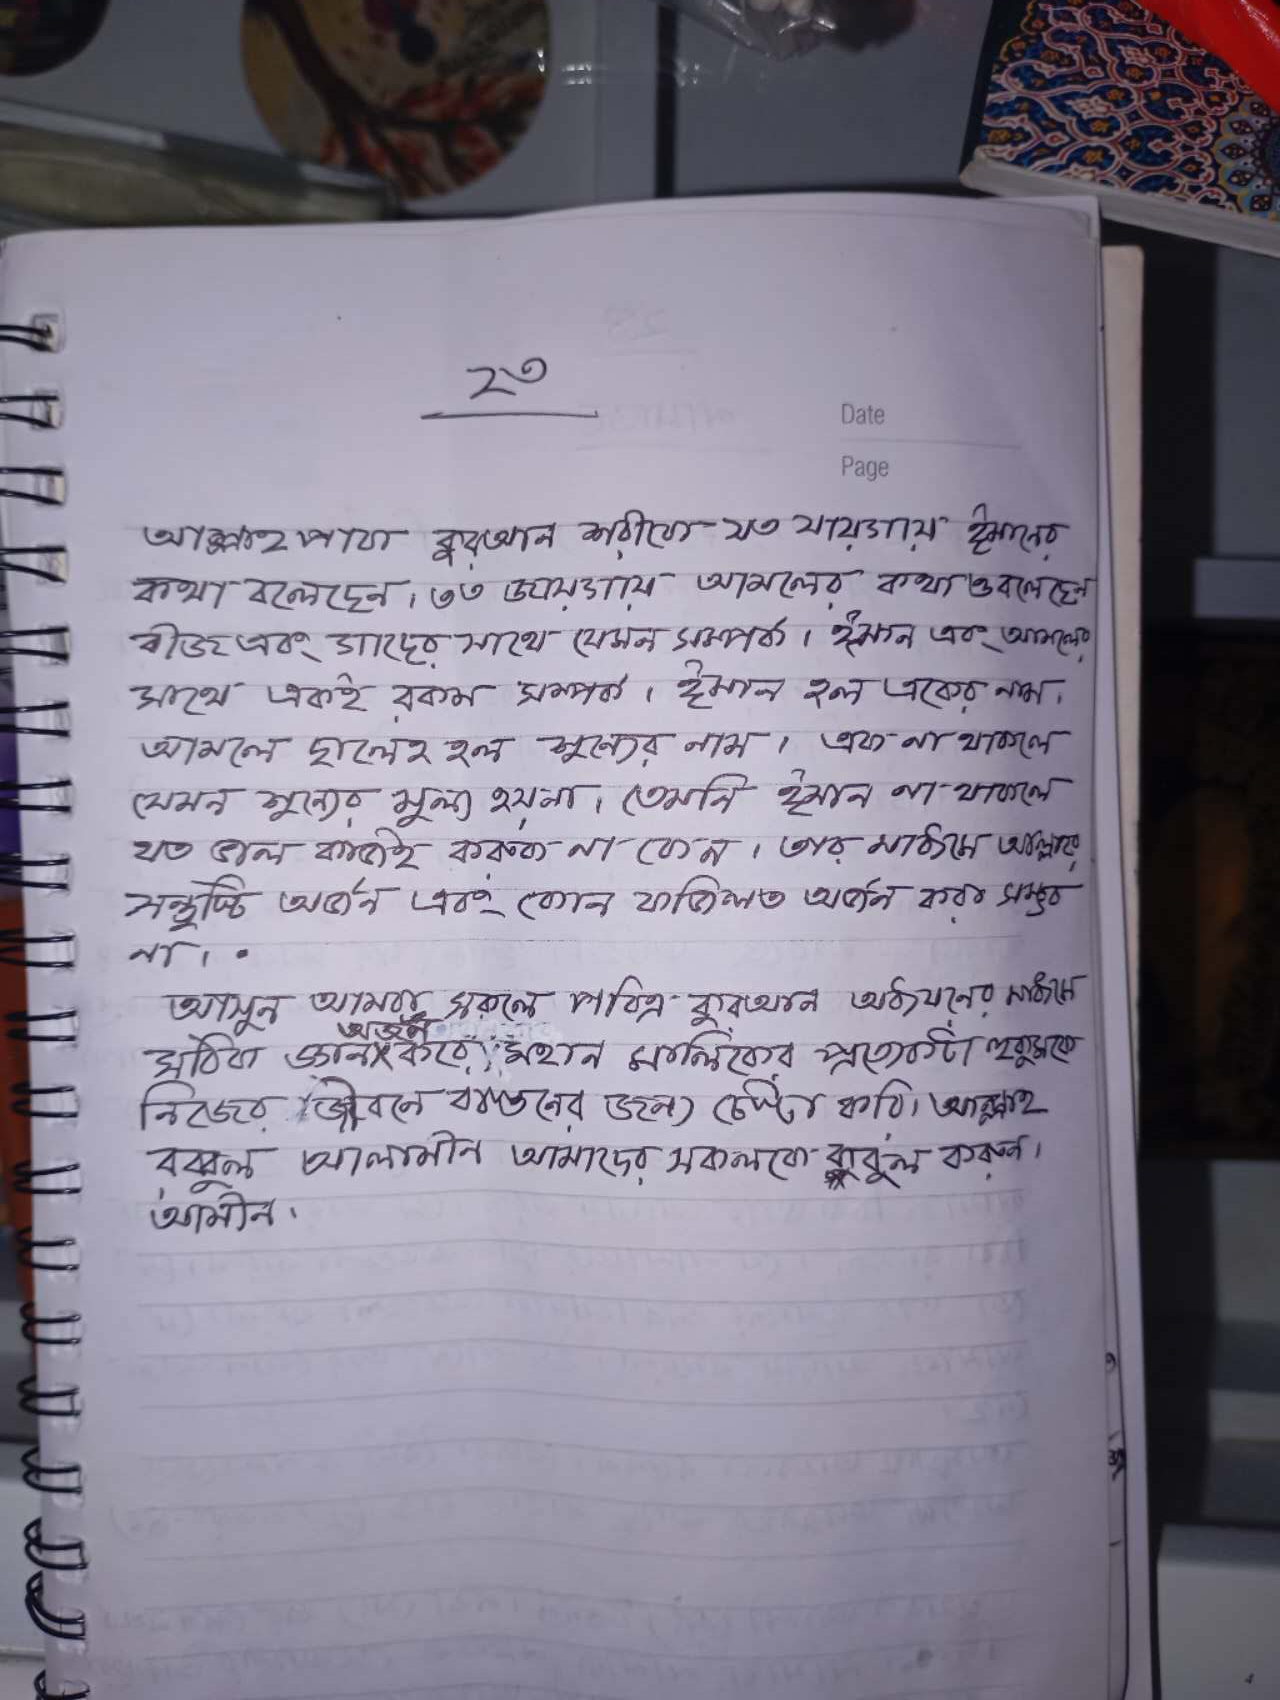 ২৩
Date
Page
আল্লাহ পাক কুরআন শরীকে যত যায়গায় ঈমানের
কথা বলেছেন। তত জায়গায় আমলের কথাও বলেছেন
বীজ এবং গাছের সাথে যেমন সম্পর্ক। ঈমান এবং আমলের
সাথে একই রকম সম্পর্ক। ঈমান হল একের নাম।
আমলে ছালেহ হল শূন্যের নাম। এক না থাকলে
যেমন শূন্যের মূল্য হয়না। তেমনি ঈমান না থাকলে
যত ভাল কাজই করুক না কেন। তার মাধ্যমে আল্লাহর
সন্তুষ্টি অর্জন এবং কোন ফজিলত অর্জন করা সম্ভব
না।
আসুন আমরা সকলে পবিত্র কুরআন অধ্যয়নের মাধ্যমে
সঠিক জ্ঞান অর্জন করে মহান মালিকের প্রত্যেকটা হুকুমকে
নিজের জীবনে বাস্তনের জন্য চেষ্টা করি। আল্লাহ
রব্বুল আলামীন আমাদের সকলকে কবুল করুন।
আমীন।